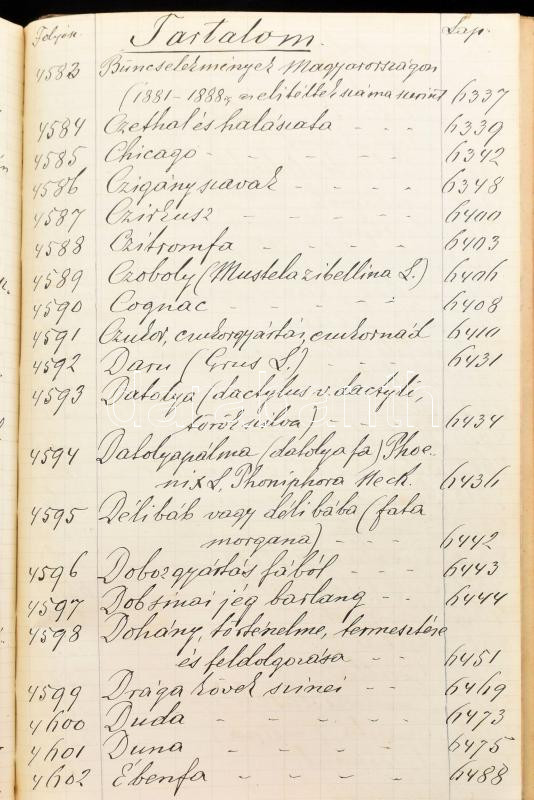 Folyósz. Tartalom. Lap.
4583 Bűncselekmények Magyarországon
(1881–1888ig az elitéltek száma szerint 6337
4584 Czethal és halászata - - - 6339
4585 Chicago - - - - - 6342
4586 Czigányszavak - - - - 6348
4587 Czirkusz - - - - - 6400
4588 Czitromfa - - - - 6403
4589 Czoboly (Mustela zibellina L.) 6406
4590 Cognac - - - - - 6408
4591 Czukor, czukorgyártás, czukornád 6410
4592 Daru (Grus L.) - - - 6431
4593 Datolya (dactylus v. dactyli,
török szilva) - - - 6434
4594 Datolyapálma (datolyafa) Phoe-
nix L, Phoniphora Neck. 6436
4595 Délibáb vagy délibába (fata
morgana) - - - 6442
4596 Dobozgyártás fából - - - 6443
4597 Dobsinai jég barlang - - 6444
4598 Dohány, történelme, termesztése
és feldolgozása - - 6451
4599 Drága kövek szinei - - 6469
4600 Duda - - - - - 6473
4601 Duna - - - - - 6475
4602 Ébenfa - - - - 6488